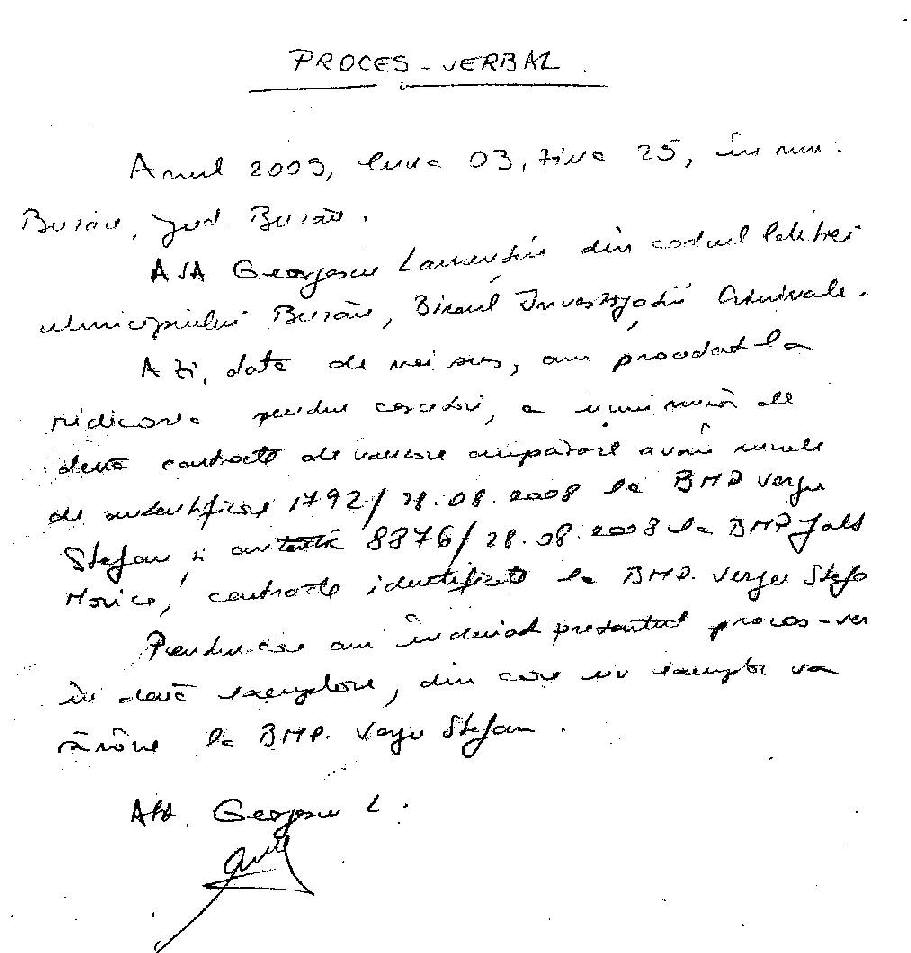 PROCES-VERBAL
Anul 2009, luna 03, ziua 25, în mun.
Buzău, jud Buzău.
ASA Georgescu Laurențiu din cadrul Poliției
Municipiului Buzău, Biroul Investigații Criminale.
Azi, data de mai sus, am procedat la
ridicarea pentru cercetări, a unui număr de
două contracte de vânzare cumpărare având numerele
de autentificare 1792/28.08.2008 la BNP Verga
Stefan și 8876/28.08.2008 la BNP
contracte identificate la BNP. Verga Stefa
Pentru care am încheiat prezentul proces-ver
în două exemplare, din care un exemplar va
rămâne la BNP. Verga Stefan.
ASA Georgescu L.